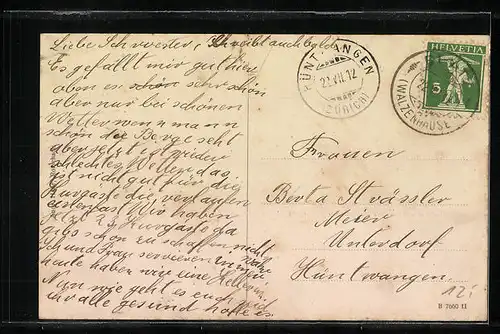 Liebe Schwester, Schreibt auch bald
Es gefällt mir gut hier
oben es schön sehr schön
aber nur bei schönen
Wetter wenn mann
schön die Berge seht
aber jetzt ist wieder
schlechtes Wetter das
ist nicht gut für die
Kurgäste die verlaufen
Wir haben
jetzt 23 Kurgäste da
gibs schon zu schaffen nicht
ich und Frau servieren
heute haben wir eine
Nun wie geht es euch
ihr alle gesund hoffe es
HÜNTWANGEN
21.VII.12
(ZÜRICH)
HELVETIA
5
(WALZENHAUSE
Frauen
Berta Strässler
Meier
Unterdorf
Hüntwangen
12.-
B 7000 II